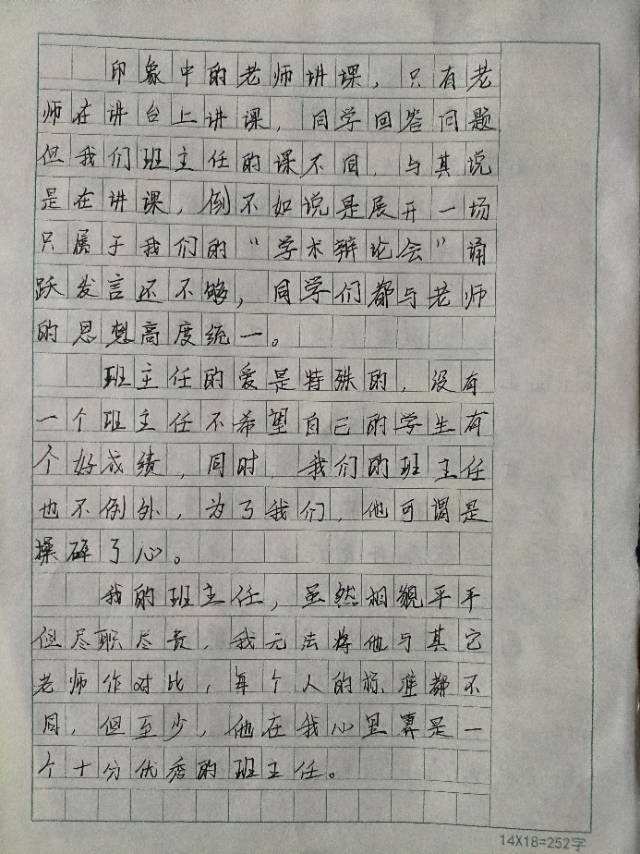 印象中的老师讲课，只有老
师在讲台上讲课，同学回答问题
但我们班主任的课不同，与其说
是在讲课，倒不如说是展开一场
只属于我们的“学术辩论会”诵
跃发言还不够，同学们都与老师
的思想高度统一。
班主任的爱是特殊的，没有
一个班主任不希望自己的学生有
个好成绩，同时 我们的班主任
也不例外，为了我们，他可谓是
操碎了心。
我的班主任，虽然相貌平平
但尽职尽责，我无法将他与其它
老师作对比，每个人的标准都不
同，但至少，他在我心里算是一
个十分优秀的班主任。
14X18=252字